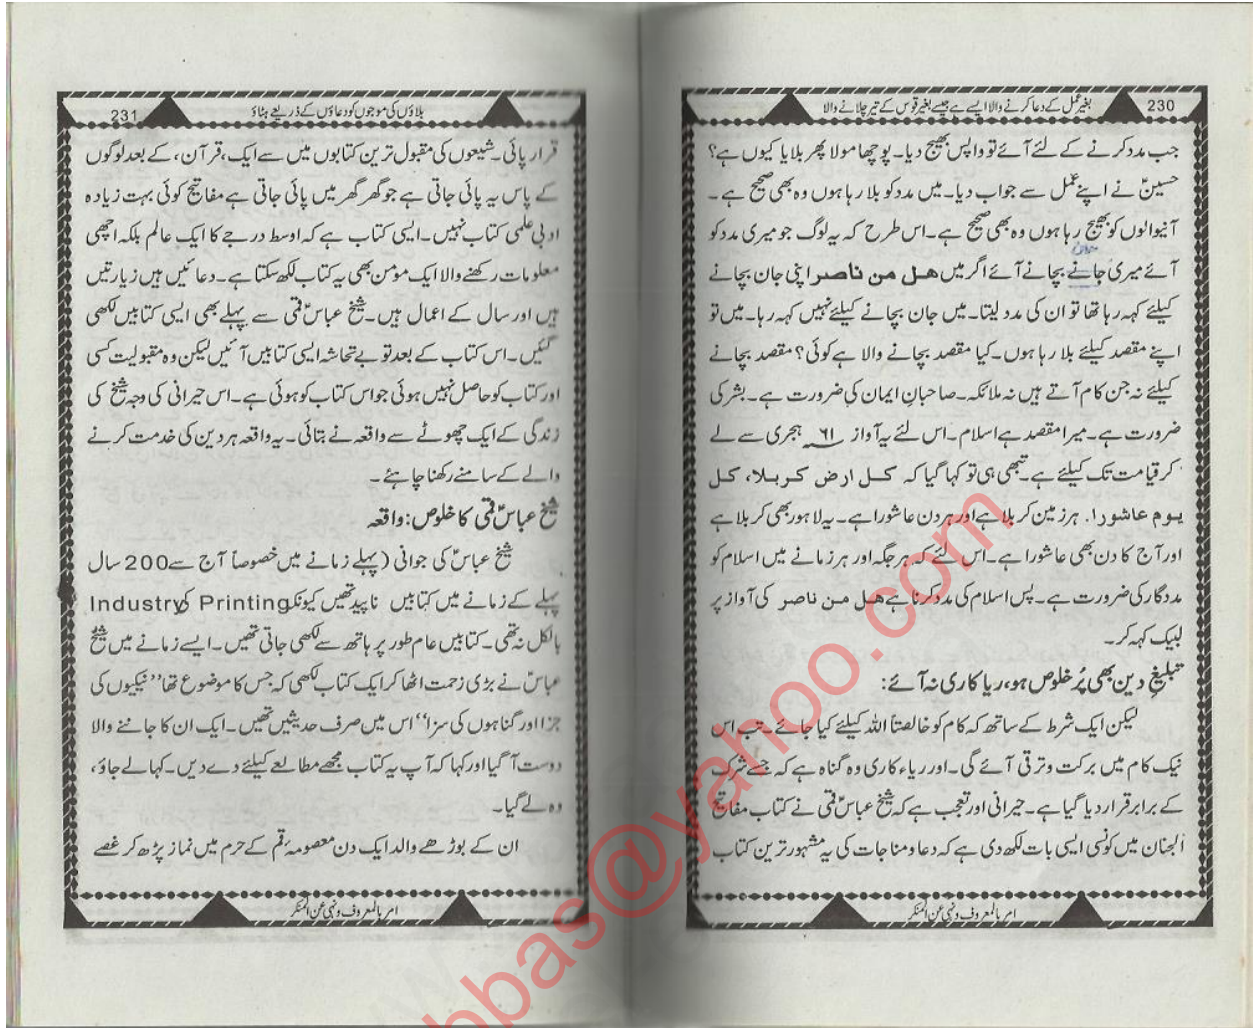 230
بغیر عمل کے دعا کرنے والا ایسے ہے جیسے بغیر قوس کے تیر چلانے والا
جب مدد کرنے کے لئے آئے تو واپس بھیج دیا۔ پوچھا مولا پھر بلایا کیوں ہے؟
حسینؑ نے اپنے عمل سے جواب دیا۔ میں مدد کو بلا رہا ہوں وہ بھی صحیح ہے۔
آنیوالوں کو بھیج رہا ہوں وہ بھی صحیح ہے۔ اس طرح کہ یہ لوگ جو میری مدد کو
جان
آئے میری جانے بچانے آئے اگر میں ھل من ناصر اپنی جان بچانے
کیلئے کہہ رہا تھا تو ان کی مدد لیتا۔ میں جان بچانے کیلئے نہیں کہہ رہا۔ میں تو
اپنے مقصد کیلئے بلا رہا ہوں۔ کیا مقصد بچانے والا ہے کوئی؟ مقصد بچانے
کیلئے نہ جن کام آتے ہیں نہ ملائکہ۔ صاحبان ایمان کی ضرورت ہے۔ بشر کی
ضرورت ہے۔ میرا مقصد ہے اسلام۔ اس لئے یہ آواز ۶۱ ہجری سے لے
کر قیامت تک کیلئے ہے۔ تبھی ہی تو کہا گیا کہ کل ارض کربلا، کل
یوم عاشورا. ہر زمین کربلا ہے اور ہر دن عاشورا ہے۔ یہ لاہور بھی کربلا ہے
اور آج کا دن بھی عاشورا ہے۔ اس لئے کہ ہر جگہ اور ہر زمانے میں اسلام کو
مددگار کی ضرورت ہے۔ پس اسلام کی مدد کرنا ہے ھل من ناصر کی آواز پر
لبیک کہہ کر۔
تبلیغِ دین بھی پُر خلوص ہو، ریاکاری نہ آئے:
لیکن ایک شرط کے ساتھ کہ کام کو خالصتاً اللہ کیلئے کیا جائے۔ تب اس
نیک کام میں برکت و ترقی آئے گی۔ اور ریاء کاری وہ گناہ ہے کہ جسے شرک
کے برابر قرار دیا گیا ہے۔ حیرانی اور تعجب ہے کہ شیخ عباسؒ قمی نے کتاب مفاتیح
الجنان میں کونسی ایسی بات لکھ دی ہے کہ دعا و مناجات کی یہ مشہور ترین کتاب
امر بالمعروف و نہی عن المنکر
231
بلاؤں کی موجوں کو دعاؤں کے ذریعے ہٹاؤ
قرار پائی۔ شیعوں کی مقبول ترین کتابوں میں سے ایک، قرآن، کے بعد لوگوں
کے پاس یہ پائی جاتی ہے جو گھر گھر میں پائی جاتی ہے مفاتیح کوئی بہت زیادہ
ادبی علمی کتاب نہیں۔ ایسی کتاب ہے کہ اوسط درجے کا ایک عالم بلکہ اچھی
معلومات رکھنے والا ایک مومن بھی یہ کتاب لکھ سکتا ہے۔ دعائیں ہیں زیارتیں
ہیں اور سال کے اعمال ہیں۔ شیخ عباسؒ قمی سے پہلے بھی ایسی کتابیں لکھی
گئیں۔ اس کتاب کے بعد تو بے تحاشہ ایسی کتابیں آئیں لیکن وہ مقبولیت کسی
اور کتاب کو حاصل نہیں ہوئی جو اس کتاب کو ہوئی ہے۔ اس حیرانی کی وجہ شیخ کی
زندگی کے ایک چھوٹے سے واقعہ نے بتائی۔ یہ واقعہ ہر دین کی خدمت کرنے
والے کے سامنے رکھنا چاہئے۔
شیخ عباسؒ قمی کا خلوص: واقعہ
شیخ عباسؒ کی جوانی (پہلے زمانے میں خصوصاً آج سے 200 سال
پہلے کے زمانے میں کتابیں ناپید تھیں کیونکہ Printing کی Industry
بالکل نہ تھی۔ کتابیں عام طور پر ہاتھ سے لکھی جاتی تھیں۔ ایسے زمانے میں شیخؒ
عباسؒ نے بڑی زحمت اٹھا کر ایک کتاب لکھی کہ جس کا موضوع تھا ’’نیکیوں کی
جزا اور گناہوں کی سزا‘‘ اس میں صرف حدیثیں تھیں۔ ایک ان کا جاننے والا
دوست آ گیا اور کہا کہ آپ یہ کتاب مجھے مطالعے کیلئے دے دیں۔ کہا لے جاؤ،
وہ لے گیا۔
ان کے بوڑھے والد ایک دن معصومۂ قم کے حرم میں نماز پڑھ کر غصے
امر بالمعروف و نہی عن المنکر
bbas@yahoo.com